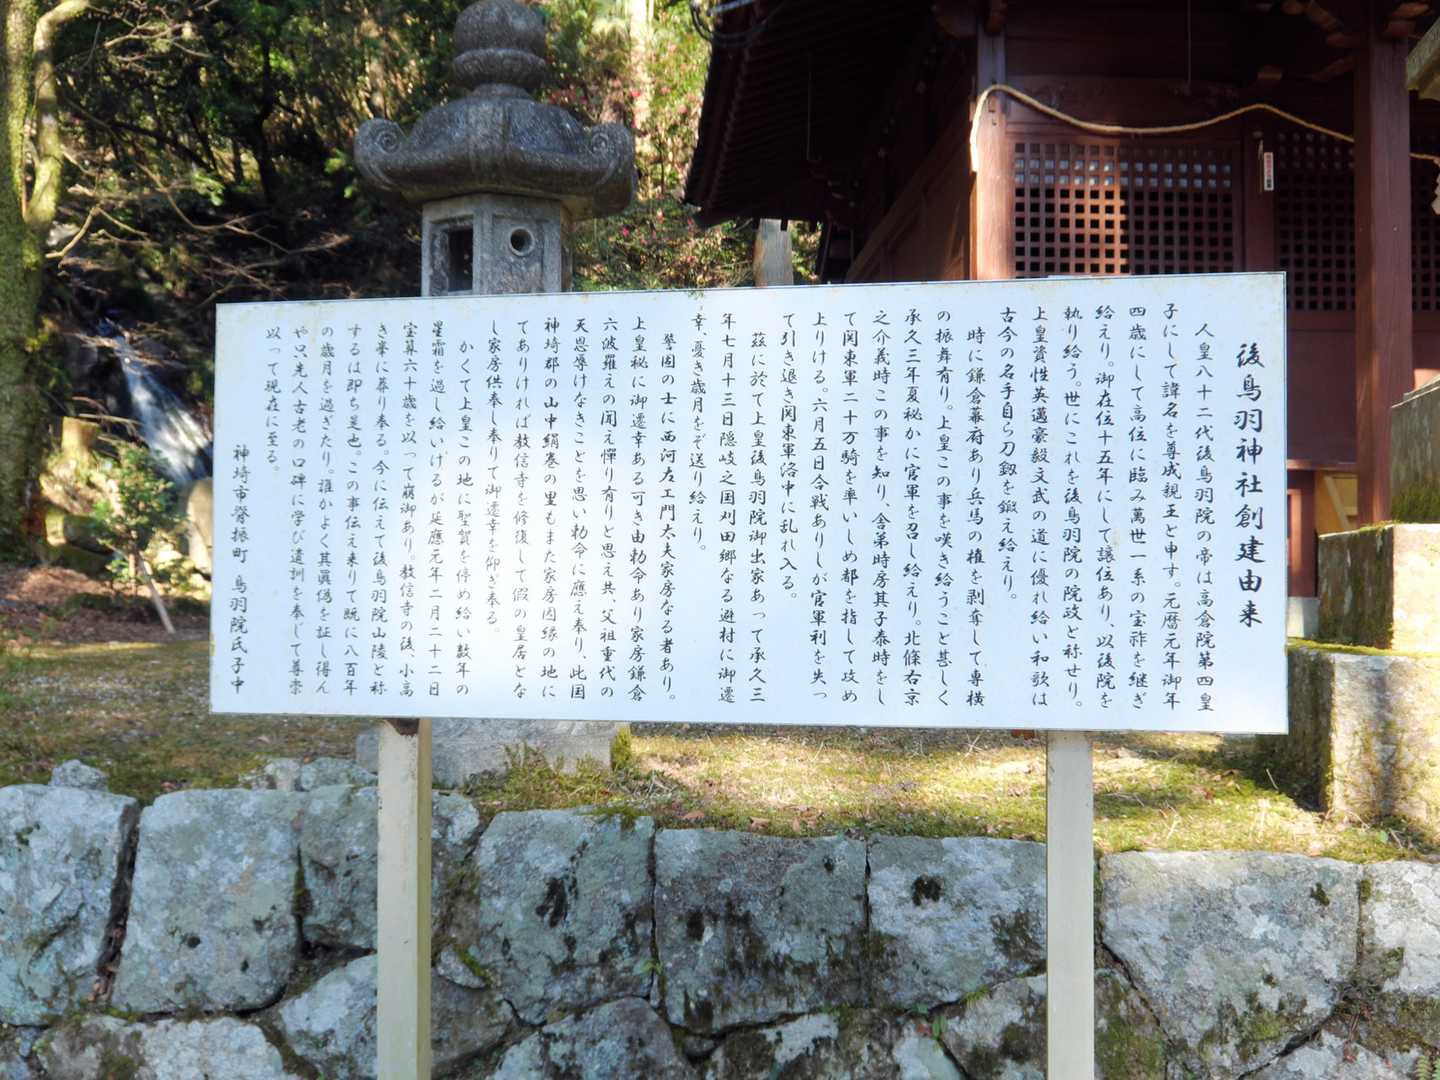 後鳥羽神社創建由来
人皇八十二代後鳥羽院の帝は高倉院第四皇
子にして諱名を尊成親王と申す。元暦元年御年
四歳にして高位に臨み萬世一系の宝祚を継ぎ
給えり。御在位十五年にして譲位あり、以後院を
執り給う。世にこれを後鳥羽院の院政と称せり。
上皇資性英邁豪毅文武の道に優れ給い和歌は
古今の名手自ら刀劔を鍛え給えり。
時に鎌倉幕府あり兵馬の権を剥奪して専横
の振舞有り。上皇この事を嘆き給うこと甚しく
承久三年夏秘かに官軍を召し給えり。北條右京
之介義時この事を知り、舎弟時房其子泰時をし
て関東軍二十万騎を率いしめ都を指して攻め
上りける。六月五日合戦ありしが官軍利を失っ
て引き退き関東軍洛中に乱れ入る。
茲に於て上皇後鳥羽院御出家あって承久三
年七月十三日隠岐之国刈田郷なる避村に御遷
幸、憂き歳月をぞ送り給えり。
警固の士に西河左エ門太夫家房なる者あり。
上皇秘に御遷幸ある可き由勅命あり家房鎌倉
六波羅えの聞え憚り有りと思え共、父祖重代の
天恩辱けなきことを思い勅命に應え奉り、此国
神埼郡の山中絹巻の里もまた家房因縁の地に
てありければ教信寺を修復して假の皇居とな
し家房供奉し奉りて御遷幸を仰ぎ奉る。
かくて上皇この地に聖賀を停め給い数年の
星霜を過し給いけるが延應元年二月二十二日
宝算六十歳を以って崩御あり。教信寺の後、小高
き峯に葬り奉る。今に伝えて後鳥羽院山陵と称
するは即ち是也。この事伝え来りて既に八百年
の歳月を過ぎたり。誰かよく其眞偽を証し得ん
や只先人古老の口碑に学び遺訓を奉じて尊崇
以って現在に至る。
神埼市脊振町 鳥羽院氏子中